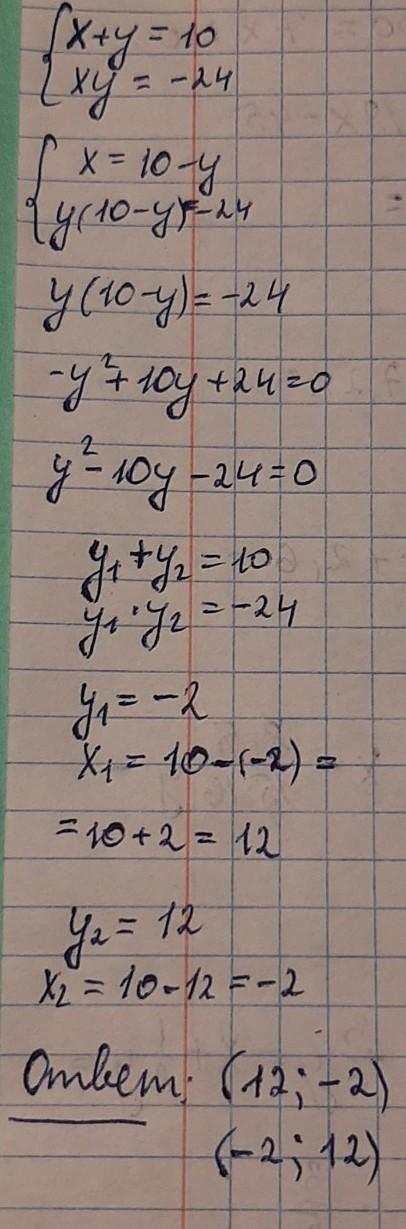 {x+y = 10
{xy = -24
{x = 10-y
{y(10-y)=-24
y(10-y)= -24
-y²+10y+24=0
y²-10y-24=0
y₁+y₂ = 10
y₁·y₂ = -24
y₁ = -2
x₁ = 10-(-2) =
=10+2 = 12
y₂ = 12
x₂ = 10-12 = -2
Ответ: (12; -2)
(-2; 12)